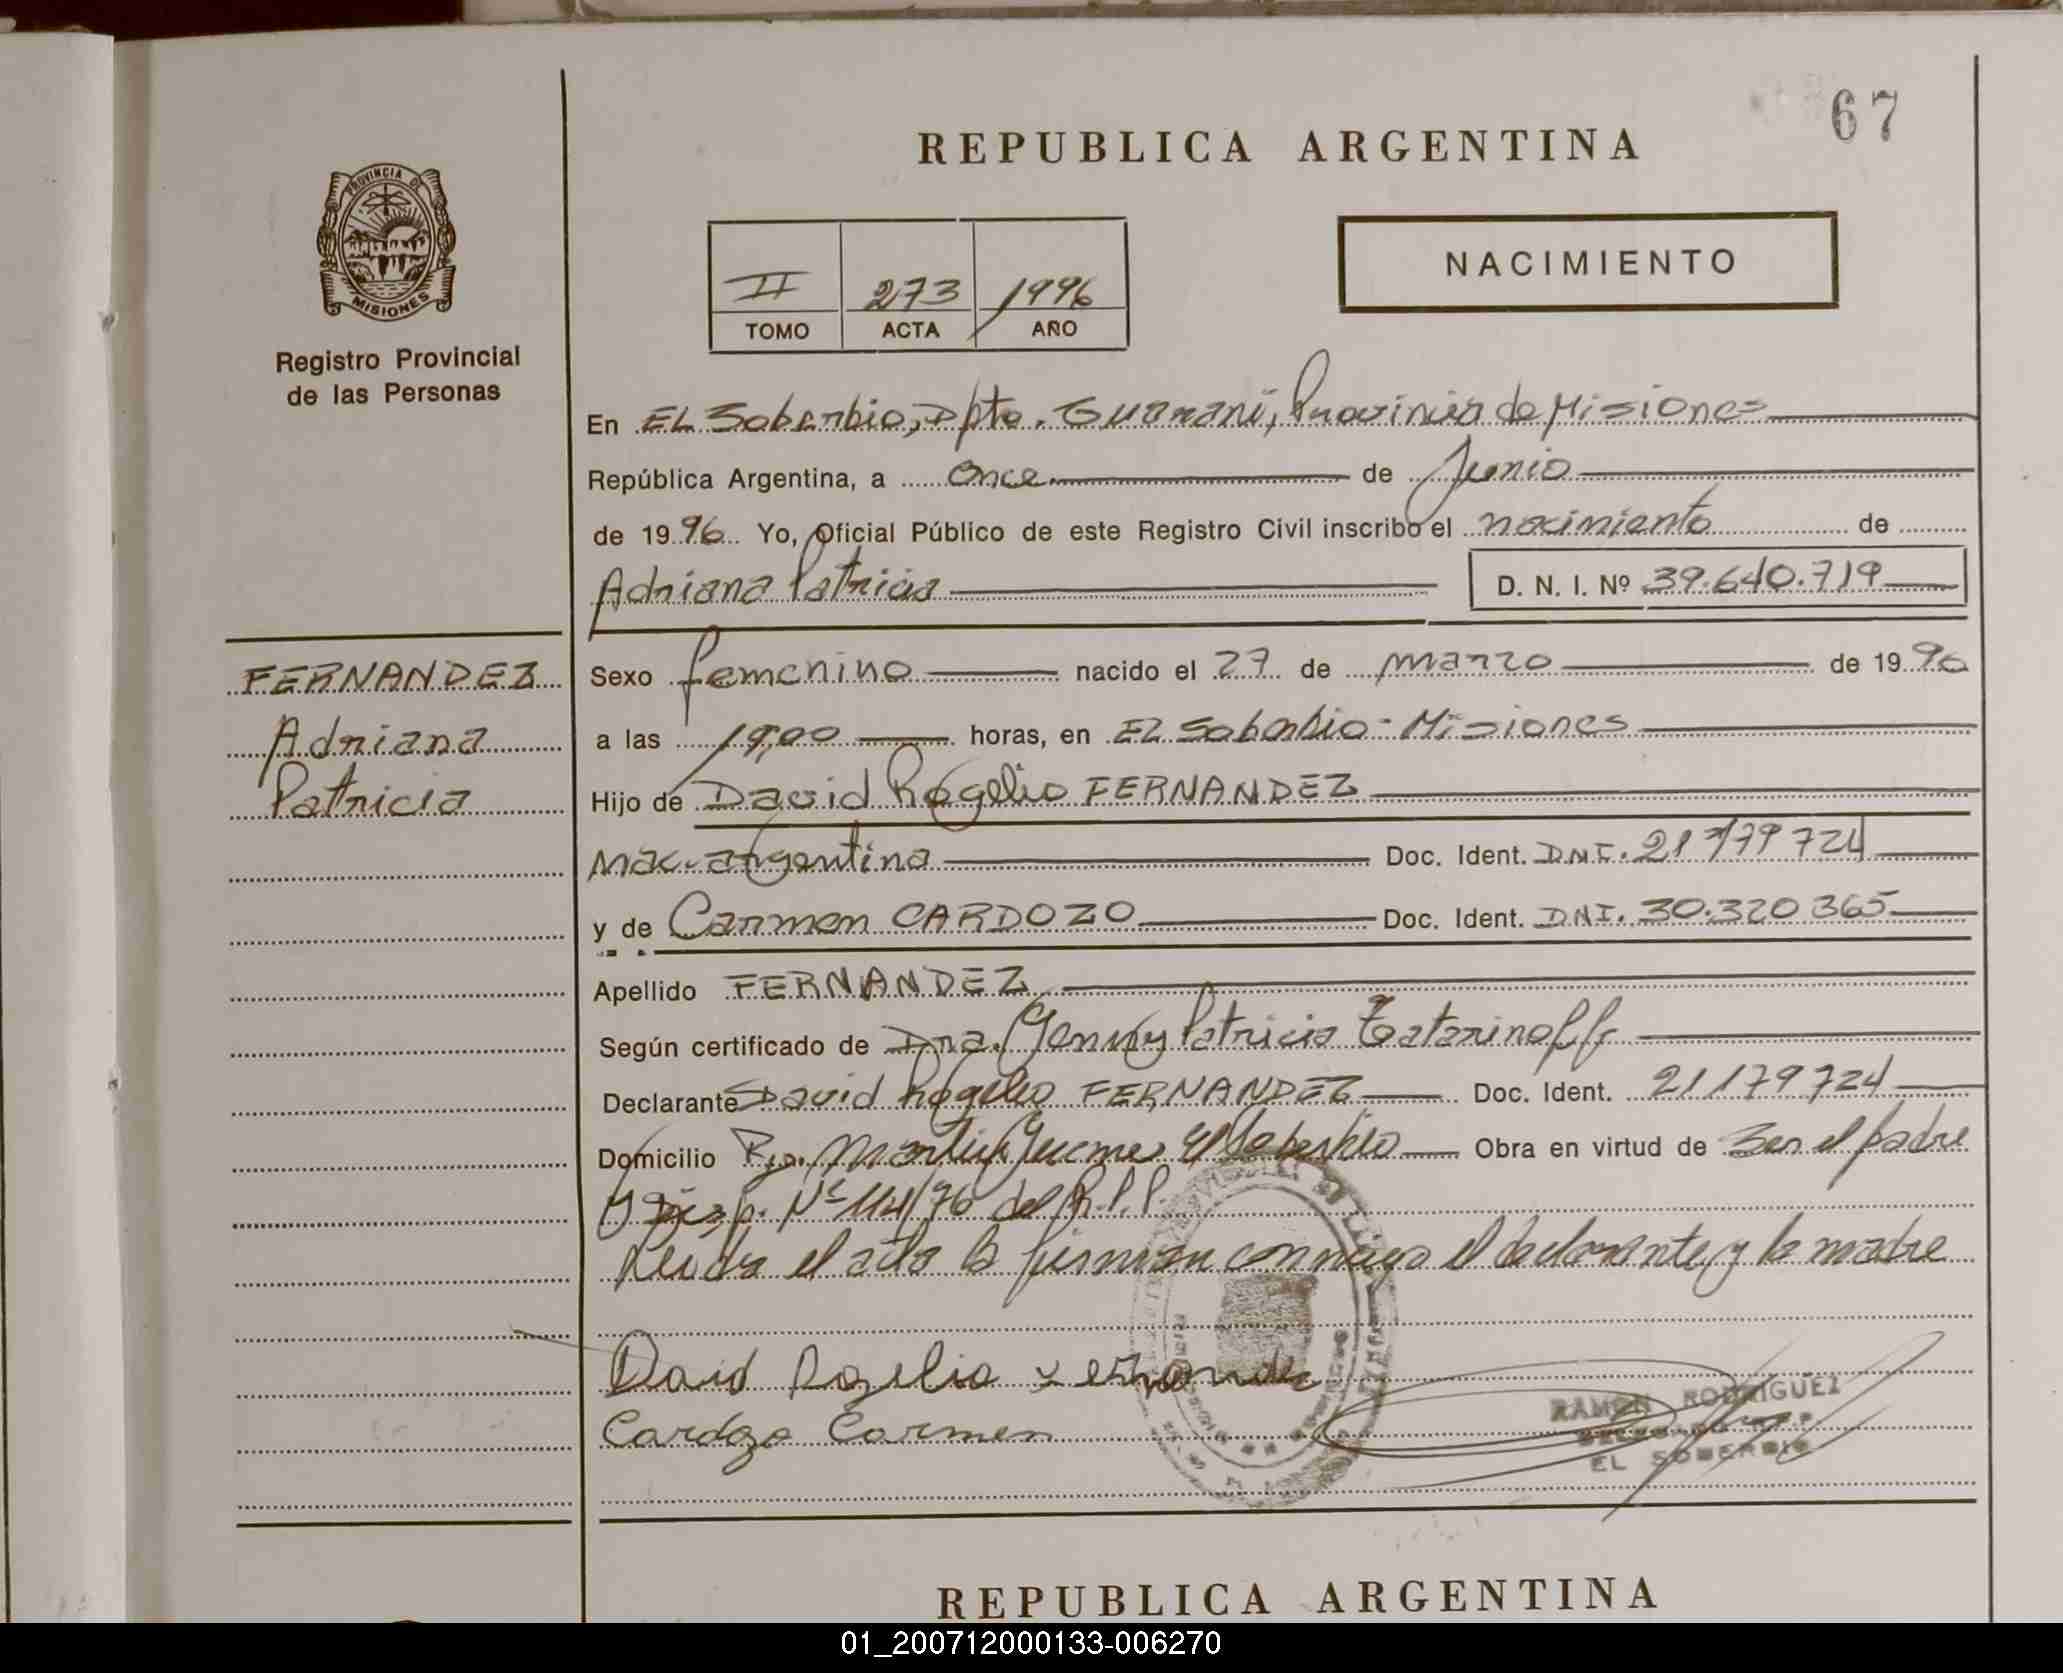 67
REPUBLICA ARGENTINA
PROVINCIA DE
MISIONES
Registro Provincial
de las Personas
NACIMIENTO
II 273 1996
TOMO ACTA AÑO
En EL Soberbio, Dpto. Guarani, Provincia de Misiones
República Argentina, a once de Junio
de 1996 Yo, Oficial Público de este Registro Civil inscribo el nacimiento de
Adriana Patricia D. N. I. Nº 39.640.719
FERNANDEZ
Adriana
Patricia
Sexo femenino nacido el 27 de marzo de 1996
a las 19,00 horas, en EL Soberbio - Misiones
Hijo de David Rogelio FERNANDEZ
Nac. argentina Doc. Ident. DNI. 21 179 724
y de Carmen CARDOZO Doc. Ident. DNI. 30.320 365
Apellido FERNANDEZ
Según certificado de Dra. Genny Patricia Tatarinoff
Declarante David Rogelio FERNANDEZ Doc. Ident. 21179724
Domicilio El Soberbio Obra en virtud de Ser el padre
y Disp. Nº 114/76 del R.P.P.
Leida el acta la firman conmigo el declarante y la madre
David Rogelio Fernandez
Cardozo Carmen
RAMON RODRIGUEZ
DELEGADO R.P.P
EL SOBERBIO
REPUBLICA ARGENTINA
01_200712000133-006270